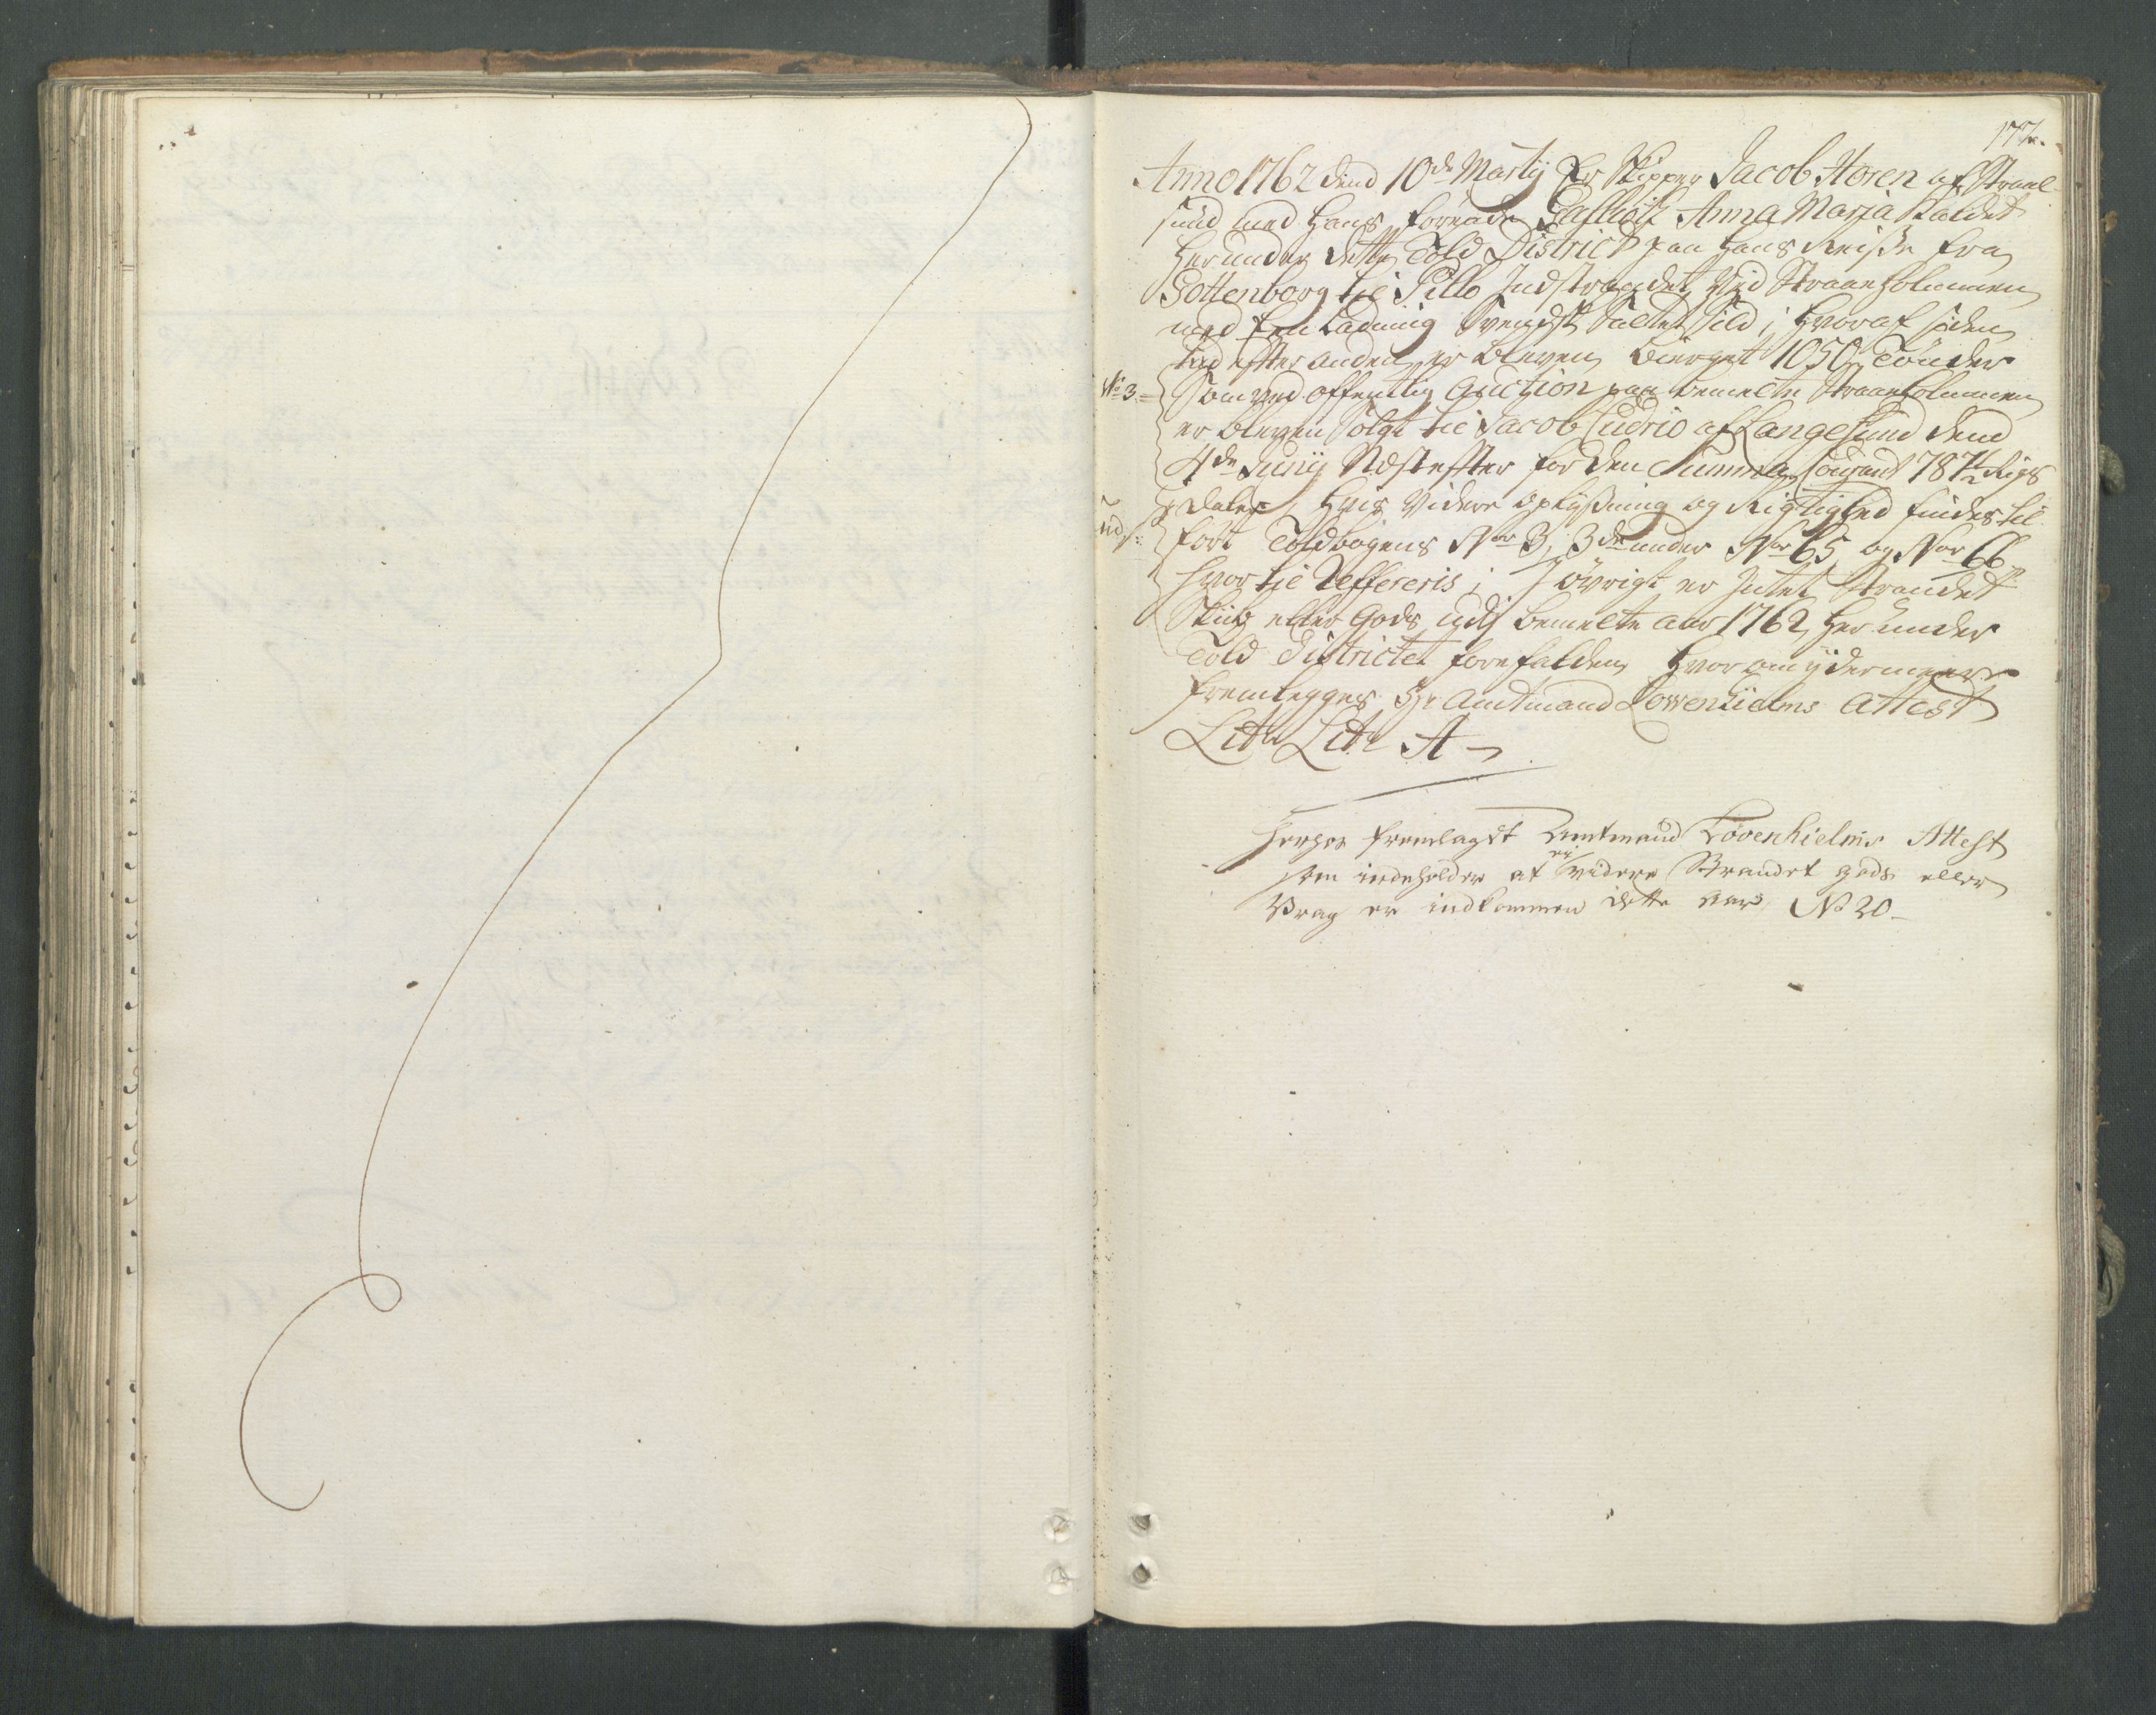 177.
Anno 1762 dend 10de Martij Er Skipper Jacob Horen af Strael-
sund med hans förende Galliöt Anna Maria Kaldet
Her under dette Told District paa hans Reise fra
Gottenborg til Pillo Indstrandet Ved Straaholmen
med sin Ladning Svensk Saltet Sild, hvoraf siden
tid efter anden er bleven bierget 1050 Tønder
No 3 Som ved offentlig Auction paa bemelte Straaholmen
er bleven Solgt til Jacob Cudrio af Langesund dend
4de Junij Næstefter for den Summa Courant 787½ Rigs
daler, Hvis Videre oplysning og Rigtighed findes til-
fört Toldbogens No 3, 3de under No 65 og No 66
hvor til Reffereris; I övrigt er Intet Strandet
Skib eller Gods udj bemelte aar 1762 her under
Told Districtet forefalden, Hvorom ydermeere
fremlegges Hr Amtmand Lowenhielms Attest
Litr Litr A
Herhos fremlagdt Amtmand Lövenhielms Attest
som indeholder at ey videre Strandet gods eller
Vrag er indkommen dette aar No 20